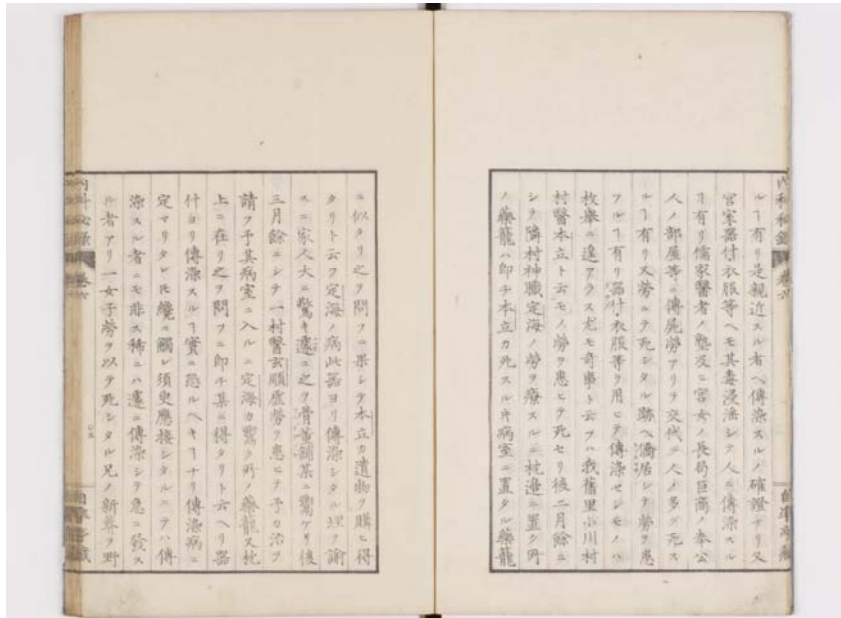 内科秘録 巻六
ルヿ有リ是親近スル者ヘ傳染スルノ確證ナリ又
宮家器什衣服等ヘモ其毒浸淫シテ人ニ傳染スル
ヿ有リ儒家醫者ノ塾及ヒ宮女ノ長局巨商ノ奉公
人ノ部屋等ニ傳尸勞アリテ交代ニ人ノ多ク死ス
ルヿ有リ又勞ニテ死シタル跡ヘ僑居シテ勞ヲ患
フルヿ有リ器什衣服等ヲ用ヒテ傳染セシモノハ
枚擧ニ遑アラス尤モ奇事ト云フハ我舊里小川村
村醫本立ト云モノ勞ヲ患ヒテ死セリ後二月餘ニ
シテ隣村神職定海ノ勞ヲ療スルニ枕邊ニ置ク所
ノ藥籠ハ即チ本立カ死スル片病室ニ置タル藥籠
ニ似タリ之ヲ問フニ果シテ本立カ遺物ヲ購ヒ得
タリト云フ定海ノ病此器ヨリ傳染シタルノ理ヲ諭
スニ家人大ニ驚キ遽ニ之ヲ骨董鋪某ニ鬻ケリ後
三月餘ニシテ一村醫玄順虚勞ヲ患ヒテ予カ治ヲ
請フ予其病室ニ入ルニ定海カ鬻ク所ノ藥籠又枕
上ニ在リ之ヲ問フニ即チ某ニ得タリト云ヘリ器
什ヨリ傳染スルヿ實ニ恐ルヘキヿナリ傳染病ニ
定マリタレ𪜈纔ニ觸レ須臾應接シタルニテハ傳
染スル者ニモ非ス稀ニハ遽ニ傳染シテ急ニ發ス
ル者アリ一女子勞ヲ以テ死シタル兄ノ新葬ヲ野
内科秘録 巻六